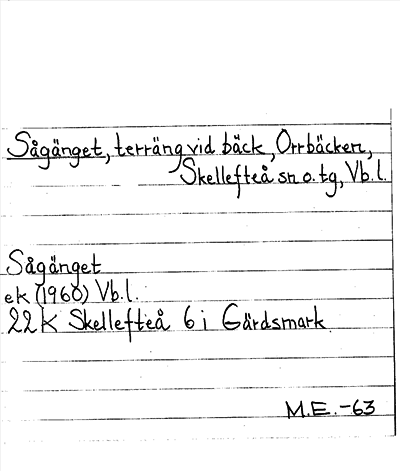 Sågänget, terräng vid bäck, Orrbäcken,
Skellefteå sn o. tg, Vb. l.
Sågänget
ek (1960) Vb. l.
22 K Skellefteå 6 i Gärdsmark
M.E. -63